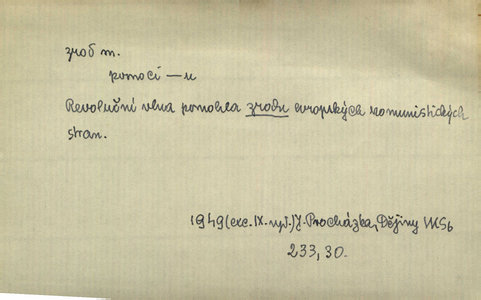 zrod m.
pomoci — u
Revoluční vlna pomohla zrodu evropských komunistických
stran.
1949 (exc. IX. vyd.) J. Procházka, Dějiny VKSb
233, 30.